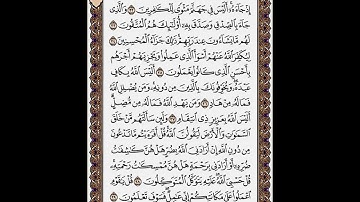 إِذْ جَآءَهُۥٓ ۚ أَلَيْسَ فِى جَهَنَّمَ مَثْوًى لِّلْكَٰفِرِينَ ۝٣٢ وَٱلَّذِى
جَآءَ بِٱلصِّدْقِ وَصَدَّقَ بِهِۦٓ ۙ أُو۟لَٰٓئِكَ هُمُ ٱلْمُتَّقُونَ ۝٣٣
لَهُم مَّا يَشَآءُونَ عِندَ رَبِّهِمْ ۚ ذَٰلِكَ جَزَآءُ ٱلْمُحْسِنِينَ ۝٣٤
لِيُكَفِّرَ ٱللَّهُ عَنْهُمْ أَسْوَأَ ٱلَّذِى عَمِلُوا۟ وَيَجْزِيَهُمْ أَجْرَهُم
بِأَحْسَنِ ٱلَّذِى كَانُوا۟ يَعْمَلُونَ ۝٣٥ أَلَيْسَ ٱللَّهُ بِكَافٍ
عَبْدَهُۥ ۖ وَيُخَوِّفُونَكَ بِٱلَّذِينَ مِن دُونِهِۦ ۚ وَمَن يُضْلِلِ ٱللَّهُ
فَمَا لَهُۥ مِنْ هَادٍ ۝٣٦ وَمَن يَهْدِ ٱللَّهُ فَمَا لَهُۥ مِن مُّضِلٍّ ۗ
أَلَيْسَ ٱللَّهُ بِعَزِيزٍ ذِى ٱنتِقَامٍ ۝٣٧ وَلَئِن سَأَلْتَهُم مَّنْ خَلَقَ
ٱلسَّمَٰوَٰتِ وَٱلْأَرْضَ لَيَقُولُنَّ ٱللَّهُ ۚ قُلْ أَفَرَءَيْتُم مَّا تَدْعُونَ
مِن دُونِ ٱللَّهِ إِنْ أَرَادَنِىَ ٱللَّهُ بِضُرٍّ هَلْ هُنَّ كَٰشِفَٰتُ
ضُرِّهِۦٓ أَوْ أَرَادَنِى بِرَحْمَةٍ هَلْ هُنَّ مُمْسِكَٰتُ رَحْمَتِهِۦ ۚ
قُلْ حَسْبِىَ ٱللَّهُ ۖ عَلَيْهِ يَتَوَكَّلُ ٱلْمُتَوَكِّلُونَ ۝٣٨ قُلْ يَٰقَوْمِ
ٱعْمَلُوا۟ عَلَىٰ مَكَانَتِكُمْ إِنِّى عَٰمِلٌ ۖ فَسَوْفَ تَعْلَمُونَ ۝٣٩